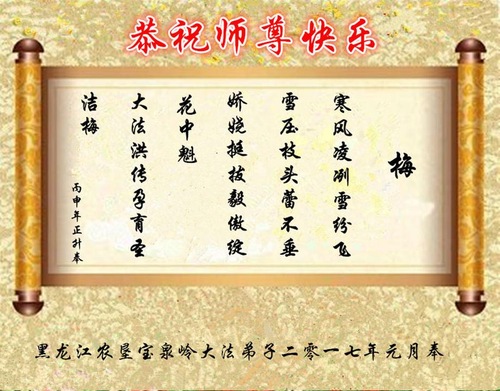 恭祝师尊快乐
梅
寒风凌冽雪纷飞
雪压枝头蕾不垂
娇娆挺拔毅傲绽
花中魁
大法洪传孕育圣
洁梅
丙申年正升奉
黑龙江农垦宝泉岭大法弟子二零一七年元月奉